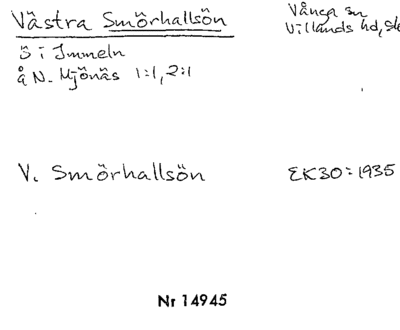 Västra Smörhallsön
Vånga sn
Ö i Immeln
Villands hd,
å N. Mjönäs 1:1, 2:1
V. Smörhallsön
EK30:1935
Nr 14945